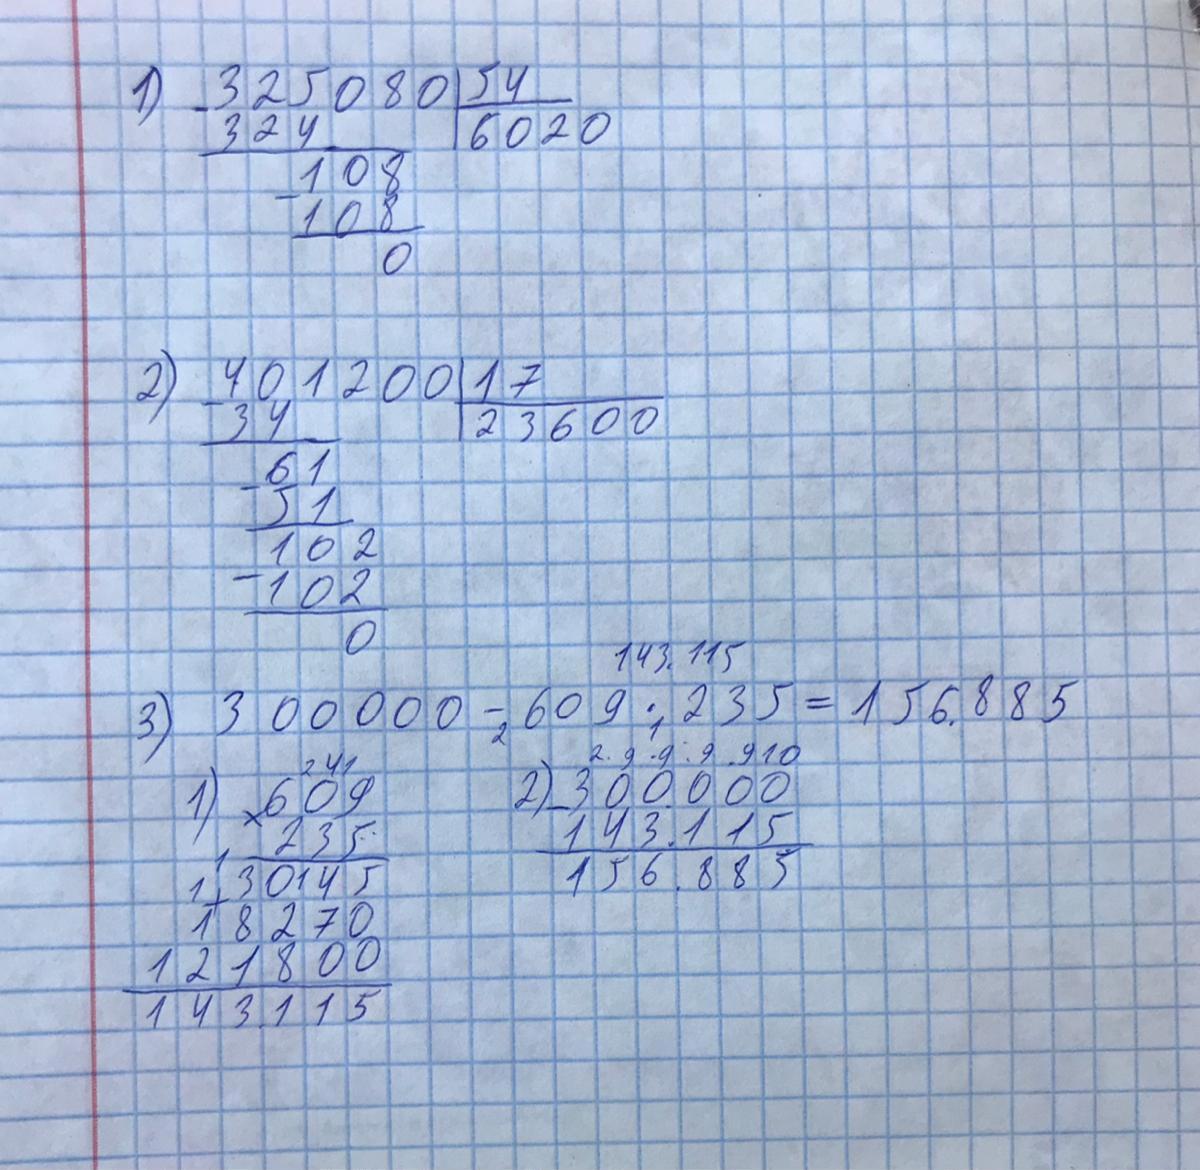 1) -325080|54
324 6020
-108
108
0
2) -401200|17
34 23600
-61
51
102
-102
0
143.115
3) 300000 - 609 · 235 = 156.885
2 1
241
1) ×609
235
1
1+30145
18270
121800
143.115
2.9.9.9.910
2) -300.000
143.115
156.885